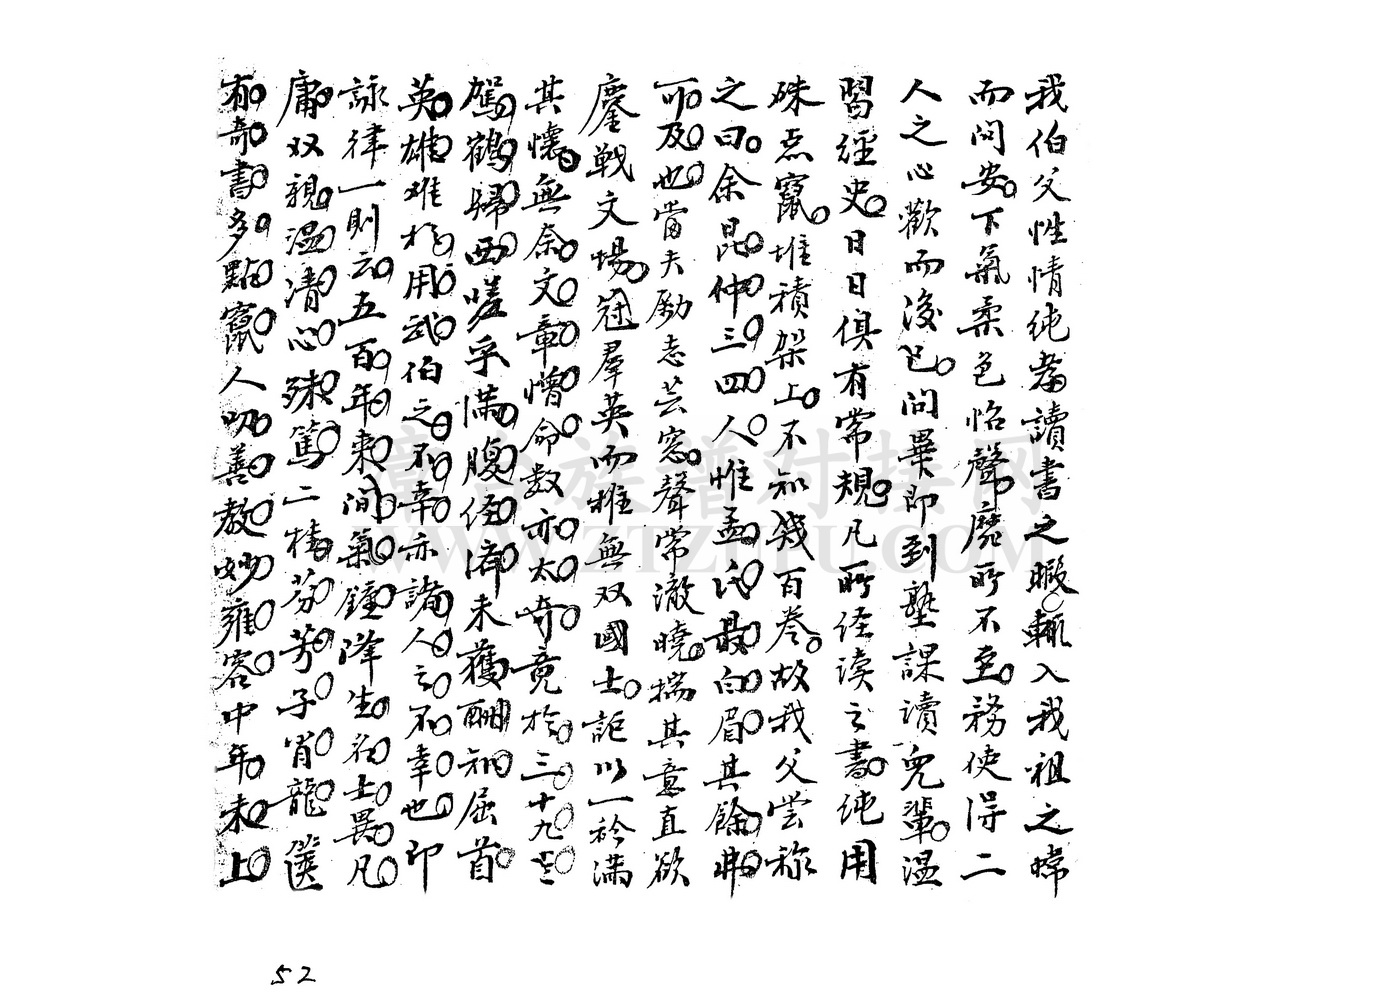 我伯父性情純孝讀書之暇輒入我祖之幃
而问安下氣柔色怡聲靡所不至務使得二
人之心歡而後已问畢即到塾課讀兒輩温
習經史日日俱有常規凡所经读之書純用
硃点竄堆積架上不知幾百卷故我父尝称
之曰余昆仲三四人惟孟氏最白眉其餘弗
可及也當夫励志芸窓聲常澈曉揣其意直欲
鏖戰文場冠羣英而推無双國士詎以一衿满
其懷無奈文章憎命数亦太奇竟於三十九
駕鶴歸西嗟乎满腹经济未獲酬知屈首
英雄难於用武伯之不幸亦諸人之不幸也即
詠律一則云五百年来间氣鐘降生名士異凡
庸双親温清心殊篤二桂芬芳子肖龍篋
有奇書多點竄人叨善教妙雍容中年未上
52
廣谷族譜对接网
WWW.ZTZUPU.COM